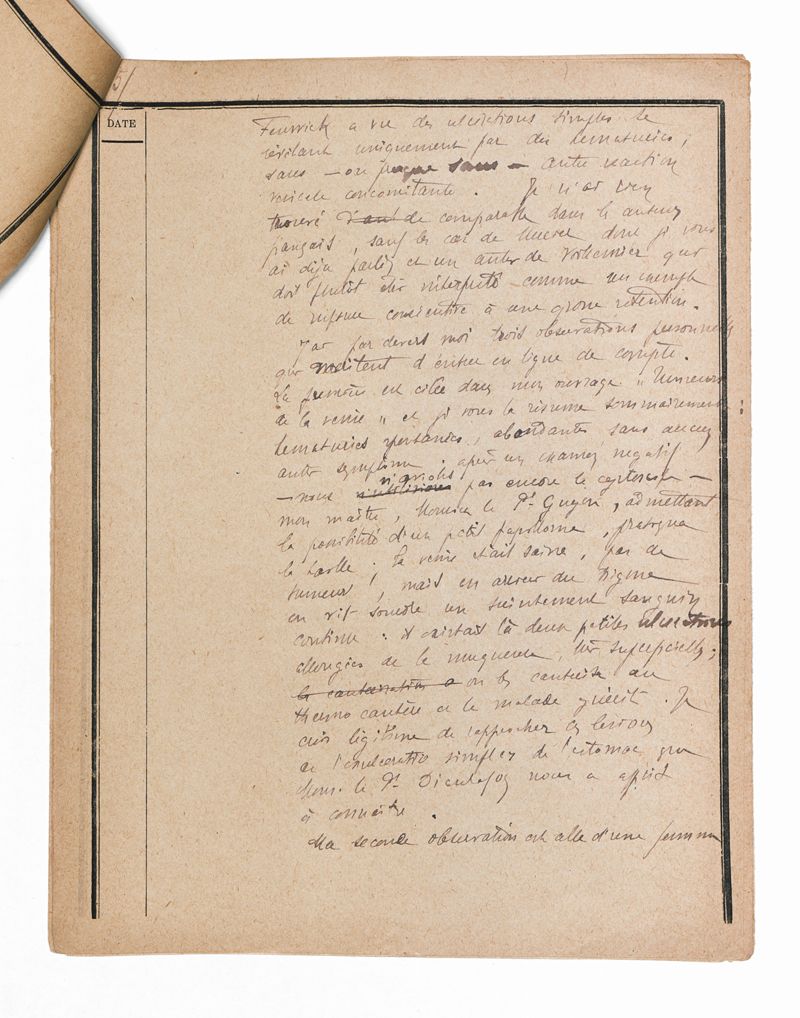 5/
DATE
Fenwick a vu des ulcérations simples se
révélant uniquement par des hématuries,
sans — ou presque sans — autre réaction
vésicale concomitante. Je n'ai rien
trouvé de comparable dans les auteurs
français, sauf les cas de dont je vous
ai déjà parlé, et un autre de Voillemier qui
doit plutôt être interprété comme un exemple
de rupture consécutive à une grosse rétention.
J'ai par devers moi trois observations personnelles
qui méritent d'entrer en ligne de compte.
La première est citée dans mon ouvrage "Tumeurs
de la vessie" et je vous la résume sommairement :
hématuries spontanées, abondantes sans aucun
autre symptôme ; après un examen négatif
— nous n'avions pas encore le cystoscope —
mon maître, Monsieur le Pr Guyon, admettant
la possibilité d'un petit papillome, pratiqua
la taille. La vessie était saine, pas de
tumeur !, mais en arrière du trigone
on vit sourdre un suintement sanguin
continu : il existait là deux petites ulcérations
allongées de la muqueuse, très superficielles ;
la cautérisation a on les cautérisa au
thermo cautère et le malade guérit. Je
crois légitime de rapprocher ces lésions
de l'exulceratio simplex de l'estomac que
Mons. le Pr Dieulafoy nous a appris
à connaître.
Ma seconde observation est celle d'une femme